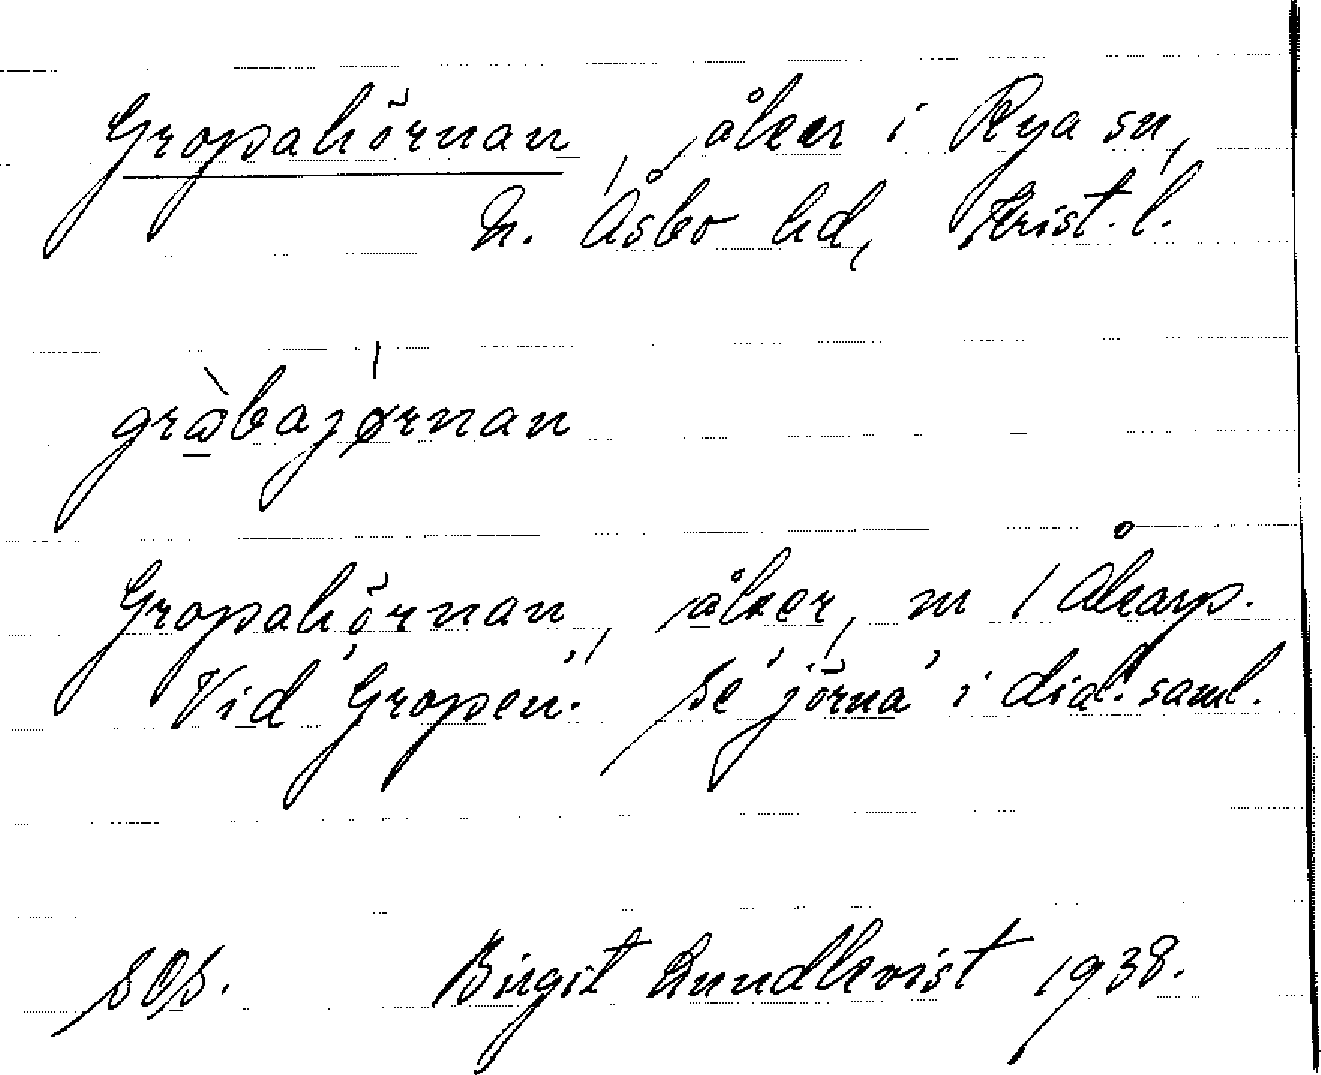 Gropahörnan, åker i Rya sn,
N. Åsbo hd, Krist. l.
gràbajørnan
Gropahörnan, åker, m / Åkarp.
Vid "Gropen". Se "jörna" i dial. saml.
SOS. Birgit Lundkvist 1938.